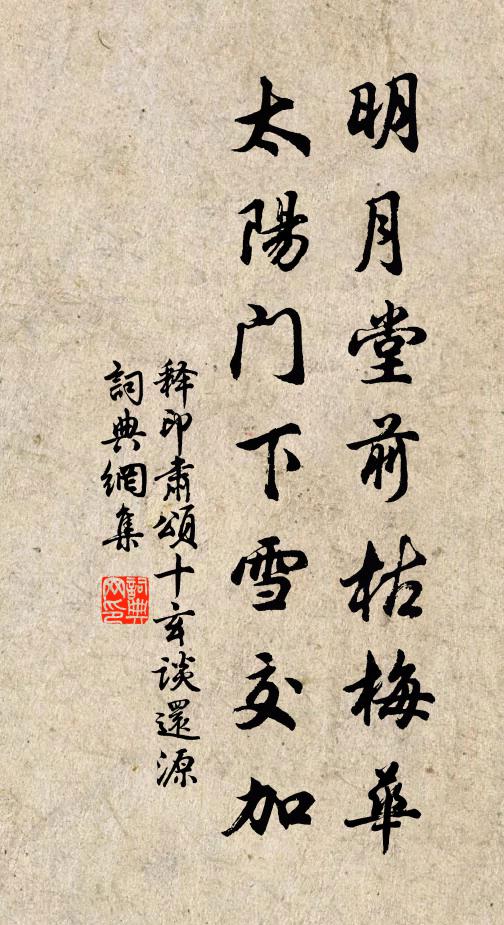 明月堂前枯梅華
太陽门下雪交加
释印肃頌十玄談還源
詞典網集
詞典
网印